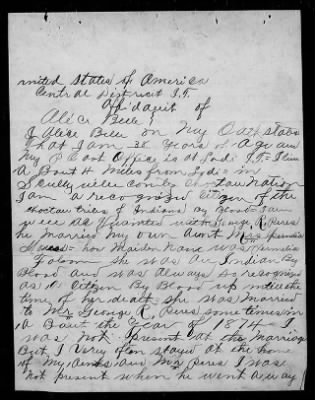 United States of America
Central District I.T.
Afidavit of
Alice Belle
I Alice Belle on my Oath state
that I am 38 Years of Age and
My P Cost Office is at Lodi I.T. I live
A Bout 4 Miles from Lodi in
Scullyville County Choctaw Nation
I am a recognized citizen of the
Choctaw tribe of Indians by Blood I am
well Acquainted with George R.
he Married My own Aunt Mrs
her Maiden Name was
Folsom She was An Indian By
Blood and was Always So recognized
as a Citizen By Blood up until the
time of her death She was Married
to Mr George R. sometimes in
A Bout the Year of 1874 I
was Not Present at the Marriage
But I Very often stayed at the home
of My Aunts and Mr I was
Not present when he went away